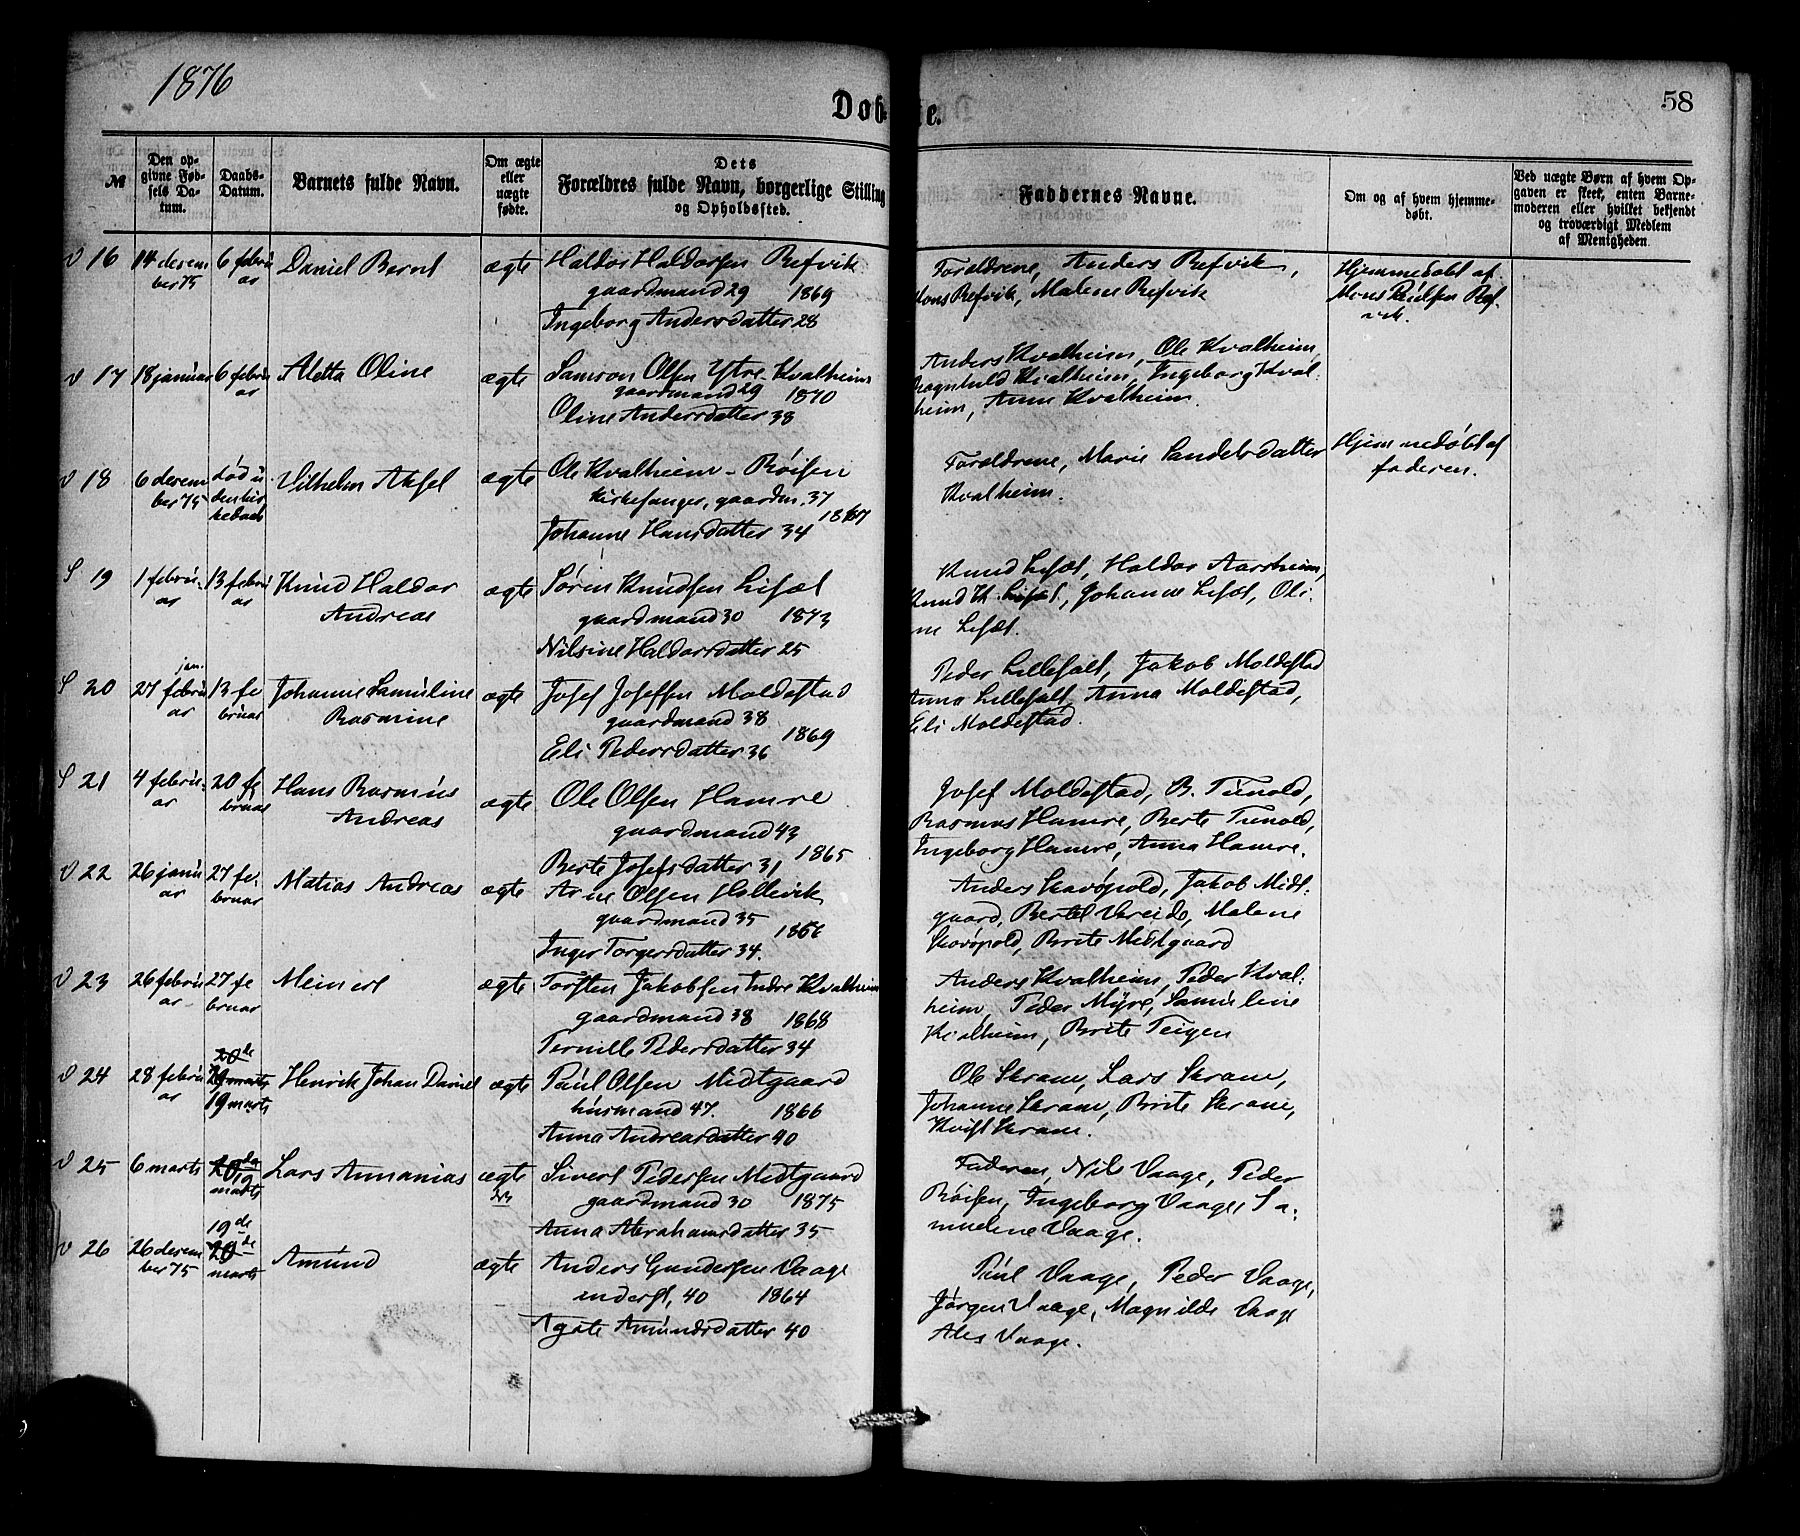 1876
Døbte.
58
№
Den opgivne Fødsels Datum.
Daabs-Datum.
Barnets fulde Navn.
Om ægte eller uægte fødte.
Dets Forældres fulde Navn, borgerlige Stilling og Opholdssted.
Faddernes Navne.
Om og af hvem hjemmedøbt.
Ved uægte Børn af hvem Opgaven er skeet, enten Barnemoderen eller hvilket bekjendt og troværdigt Medlem af Menigheden.
V 16 14 desember 75 6 februar Daniel Bernt ægte Haldor Haldorsen Refvik
gaardmand 29 1869
Ingeborg Andersdatter 28
Forældrene, Anders Refvik,
Mons Refvik, Malene Refvik
Hjemmedøbt af
Mons Paulsen Ref
vik.
V 17 18 januar 6 februar Aletta Oline ægte Samson Olsen Ytre Kvalheim
gaardmand 29 1870
Oline Andersdatter 38
Anders Kvalheim, Ole Kvalheim,
Ragnhild Kvalheim, Ingeborg Kval:
heim, Anne Kvalheim.
V 18 6 desember 75 død u den kirkedaab Vilhelm Aksel ægte Ole Kvalheim - Røisen
kirkesanger, gaardm. 37
1867
Johanne Hansdatter 34
Forældrene, Marie Sandelsdatter
Kvalheim.
Hjemmedøbt af
faderen.
S 19 1 februar 13 februar Knud Haldor
Andreas ægte Søren Knudsen Lefæt
gaardmand 30 1873
Nilsine Haldorsdatter 25
Knud Lefæt, Haldor Aarsheim,
Knud K. Lefæt, Johanne Lefæt, Oli
ne Lefæt.
S 20 27 jan. februar 13 februar Johanne Samuline
Rasmine ægte Josef Joseffen Moldestad
gaardmand 38
1869
Eli Pedersdatter 36
Peder Lillefalt, Jakob Moldestad
Anna Lillefalt, Anna Moldestad,
Eli Moldestad.
S 21 4 februar 20 februar Hans Rasmus
Andreas ægte Ole Olsen Hamre
gaardmand 43
1865
Berte Josefsdatter 31
Josef Moldestad, B. Tunold,
Rasmus Hamre, Berte Tunold,
Ingeborg Hamre, Anna Hamre.
V 22 26 januar 27 februar Matias Andreas ægte Arne Olsen Hollevik
gaardmand 35
1866
Inger Torgersdatter 34.
Anders Skavøpold, Jakob Midt:
gaard, Bertel Vereide, Malene
Skavøpold, Brite Midtgaard
V 23 26 februar 27 februar Meinert ægte Torsten Jakobsen Indre Kvalheim
gaardmand 38 1868
Pernille Pedersdatter 34
Anders Kvalheim, Peder Kval:
heim, Peder Myre, Samuline
Kvalheim, Brite Teigen
V 24 28 februar 20de marts 19 marts Henrik Johan Daniel ægte Paul Olsen Midtgaard
husmand 47. 1866
Anna Andreasdatter 40
Ole Skram, Lars Skram,
Johanne Skram, Brite Skram,
Kvist Skram.
V 25 6 marts 20de 19 marts Lars Annanias ægte Sivert Pedersen Midtgaard
gaardmand 30 1875
Anna Abrahamsdatter 35
Faderen, Nils Vaage, Peder
Røisen, Ingeborg Vaage, Sa:
muline Vaage.
V 26 26 desember 75 19de 20de marts Amund ægte Anders Gundersen Vaage
inderst, 40 1864
Agate Amundsdatter 40
Paul Vaage, Peder Vaage,
Jørgen Vaage, Magnilde Vaage
Ales Vaage.